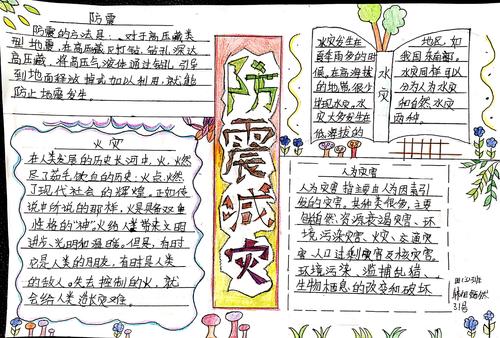 防震
防震的方法是:对于高压藏类
型地震,在高压藏区打钻,钻孔深达
高压藏,将高压气液体通过钻孔,引导
到地面释放掉或加以利用,就能
防止地震发生。
火灾
在人类发展的历史长河中,火,燃
尽了茹毛饮血的历史;火,点燃
了现代社会的辉煌。正如传
说中所说的那样,火是具备双重
性格的“神”火给人类带来文明
进步、光明和温暖。但是,有时
它是人类的朋友,有时是人类
的敌人。失去控制的火,就
会给人类造成灾难。
防震减灾
水灾
水灾发生在
夏季雨多的时
候,在高海拔
的地景很少
出现水灾。水
灾大多发生在
低海拔的
地区,如
我国东南部。
水灾同样可以
分为人为水灾
和自然水灾
两种。
人为灾害
人为灾害指主要由人为因素引
发的灾害。其种类很多,主要
包括自然资源衰竭灾害、环
境污染灾害、火灾、交通灾
害、人口过剩灾害及核灾害。
环境污染、滥捕乱猎、
生物栖息的改变和破坏
31号